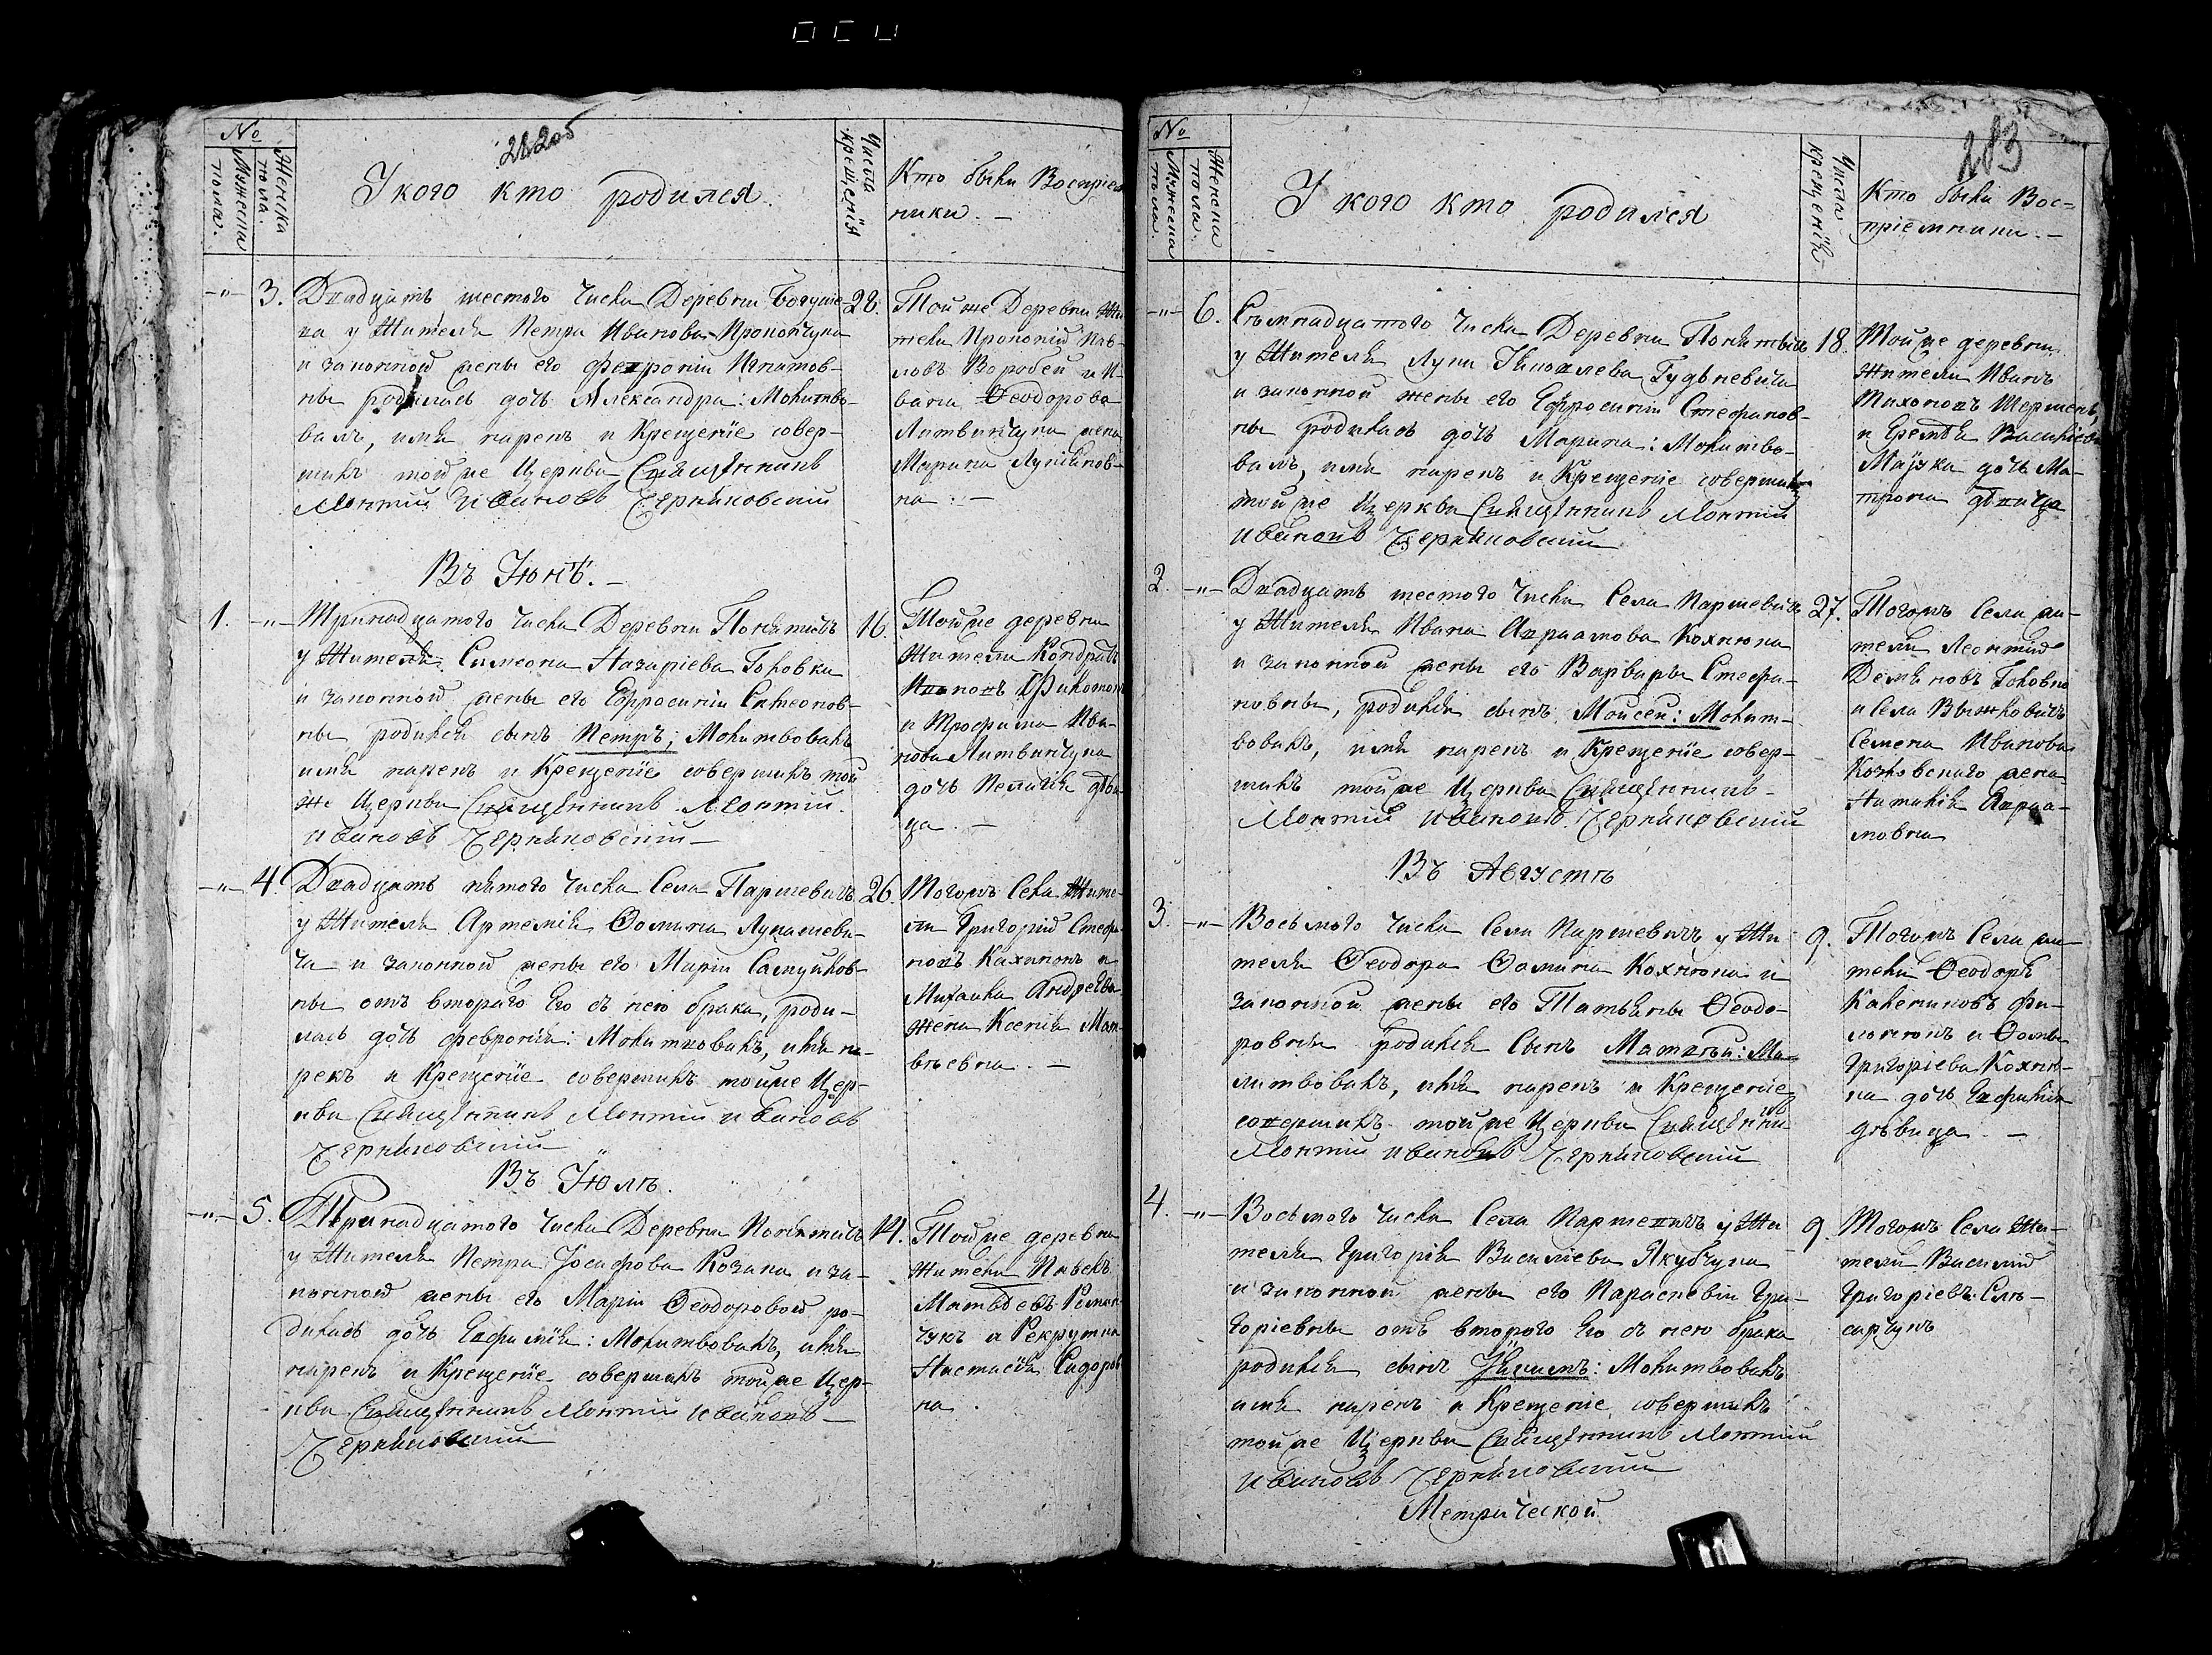 282об
№
Мужеска пола.
Женска пола.
У кого кто родился.
Числа крещенія
Кто были Воспріем-
ники. —
-"- 3. Двадцать шестого числа Деревни Богуше-
ка у Жителя Петра Иванова Прокопчука
и законной жены его Февроніи Игнатов-
ны родилась дочь Александра: Молитво-
валъ, имя нарекъ и Крещеніе совер-
шилъ тойже Церкви Священникъ
Леонтій Ивановъ Черняковскій
28.
Той же Деревни Жи-
тели Прокопій Пав-
ловъ Воробей и И-
вана Ѳеодорова
Литвинчука жена
Марина Лукіанов-
на. —
Въ Іюнѣ. —
1. -"- Тринадцатого числа Деревни Полятичъ
у Жителя Симеона Назаріева Головка
и законной жены его Евфросиніи Симеонов-
ны родился сынъ Петръ; Молитвовалъ
имя нарекъ и Крещеніе совершилъ той
же Церкви Священникъ Леонтій
Ивановъ Черняковскій —
16.
Тойже деревни
Жители Кондратъ
и Трофима Ива-
нова Литвинчука
дочь Пелагія дѣви-
ца. —
-"- 4. Двадцать пятого числа Села Паршевичъ
у Жителя Артемія Ѳомина Лукашеви-
ча и законной жены его Маріи Самуйлов-
ны отъ втораго Его съ нею брака, роди-
лась дочь Февронія: Молитвовалъ, имя на-
рекъ и Крещеніе совершилъ тойже Цер-
кви Священникъ Леонтій Ивановъ
Черняковскій
26.
Тогожъ Села Жите-
ли Григорій Стефа-
новъ Кахнюкъ и
Михаила Андреева
жена Ксенія Мат-
вѣевна. —
Въ Іюлѣ.
-"- 5. Тринадцатого числа Деревни Полятичъ
у Жителя Петра Іосифова Козака и за-
конной жены его Маріи Ѳеодоровой ро-
дилась дочь Евфимія: Молитвовалъ, имя
нарекъ и Крещеніе совершилъ тойже Цер-
кви Священникъ Леонтій Ивановъ —
Черняковскій
14.
Тойже деревни
Жители Павелъ
Матвѣевъ
и Рекрутка
Настасія Сидоров-
на.
283
№
Мужеска пола.
Женска пола.
У кого кто родился
Числа крещенія
Кто были Вос-
пріемники. —
-"- 6. Семнадцатого числа Деревни Полятичъ
у Жителя Луки Іаковлева Гудѣневича
и законной жены его Евфросиніи Стефанов-
ны родилась дочь Марина: Молитво-
валъ, имя нарекъ и Крещеніе совершилъ
тойже Церкви Священникъ Леонтій
Ивановъ Черняковскій
18.
Тойже деревни
Жители Иванъ
Тихоновъ Шершень,
и Еремѣя Василіева
дочь Ма-
трона дѣвица
2. -"- Двадцать шестого числа Села Паршевичъ
у Жителя Ивана Авраамова Кохнюка
и законной жены его Варвары Стефа-
новны, родился сынъ Моисей: Молит-
вовалъ, имя нарекъ и Крещеніе совер-
шилъ тойже Церкви Священникъ —
Леонтій Ивановъ Черняковскій
27.
Тогожъ Села жи-
тели Леонтій
Демяновъ Головко
и Села Выжловичъ
Семена Иванова
Козловского жена
Наталія Авраа-
мовна
Въ Августѣ
3. -"- Восьмого числа Села Паршевичъ у Жи-
теля Ѳеодора Ѳомина Кохнюка и
законной жены его Татьяны Ѳеодо-
ровны родился Сынъ Матвѣй: Мо-
литвовалъ, имя нарекъ и Крещеніе
совершилъ тойже Церкви Священникъ
Леонтій Ивановъ Черняковскій
9.
Тогожъ Села жи-
тели Ѳеодоръ
Калениковъ Фи-
и Ѳомы
Григоріева Кохню-
ка дочь Евфимія
дѣвица. —
4. -"- Восьмого числа Села Паршевичъ у Жи-
теля Григорія Василіева Якубчука
и законной жены его Параскевіи Гри-
горіевны отъ второго Его съ нею брака
родился сынъ Іакимъ: Молитвовалъ
имя нарекъ и Крещеніе совершилъ
тойже Церкви Священникъ Леонтій
Ивановъ Черняковскій
9.
Тогожъ Села Жи-
тели Василій
Григоріевъ Слѣ-
сарчукъ
Метрической